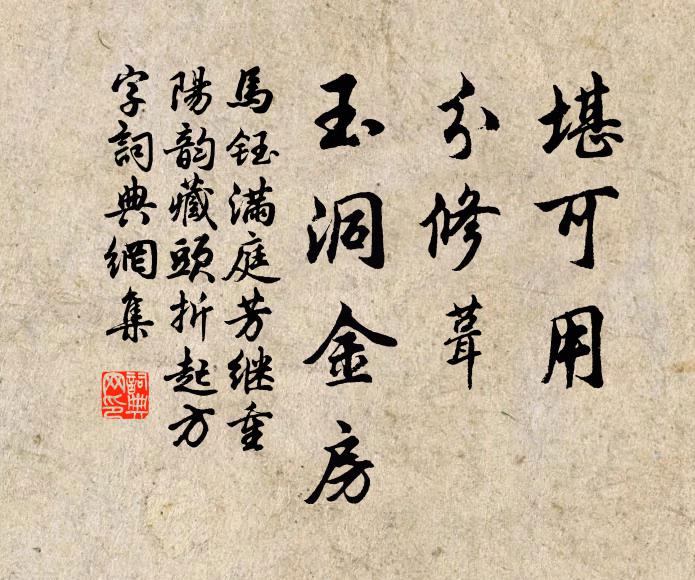 堪可用
分修葺
玉洞金房
馬鈺滿庭芳继重
陽韵藏頭折起方
字詞典網集
詞典
网印